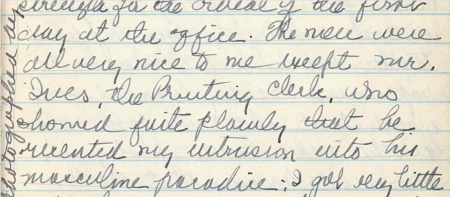 strength for the ordeal of the first
day at the office. The men were
all very nice to me except Mr.
Ives, the Printing Clerk, who
showed quite plainly that he
resented my intrusion into his
masculine paradise; I got very little
photographed